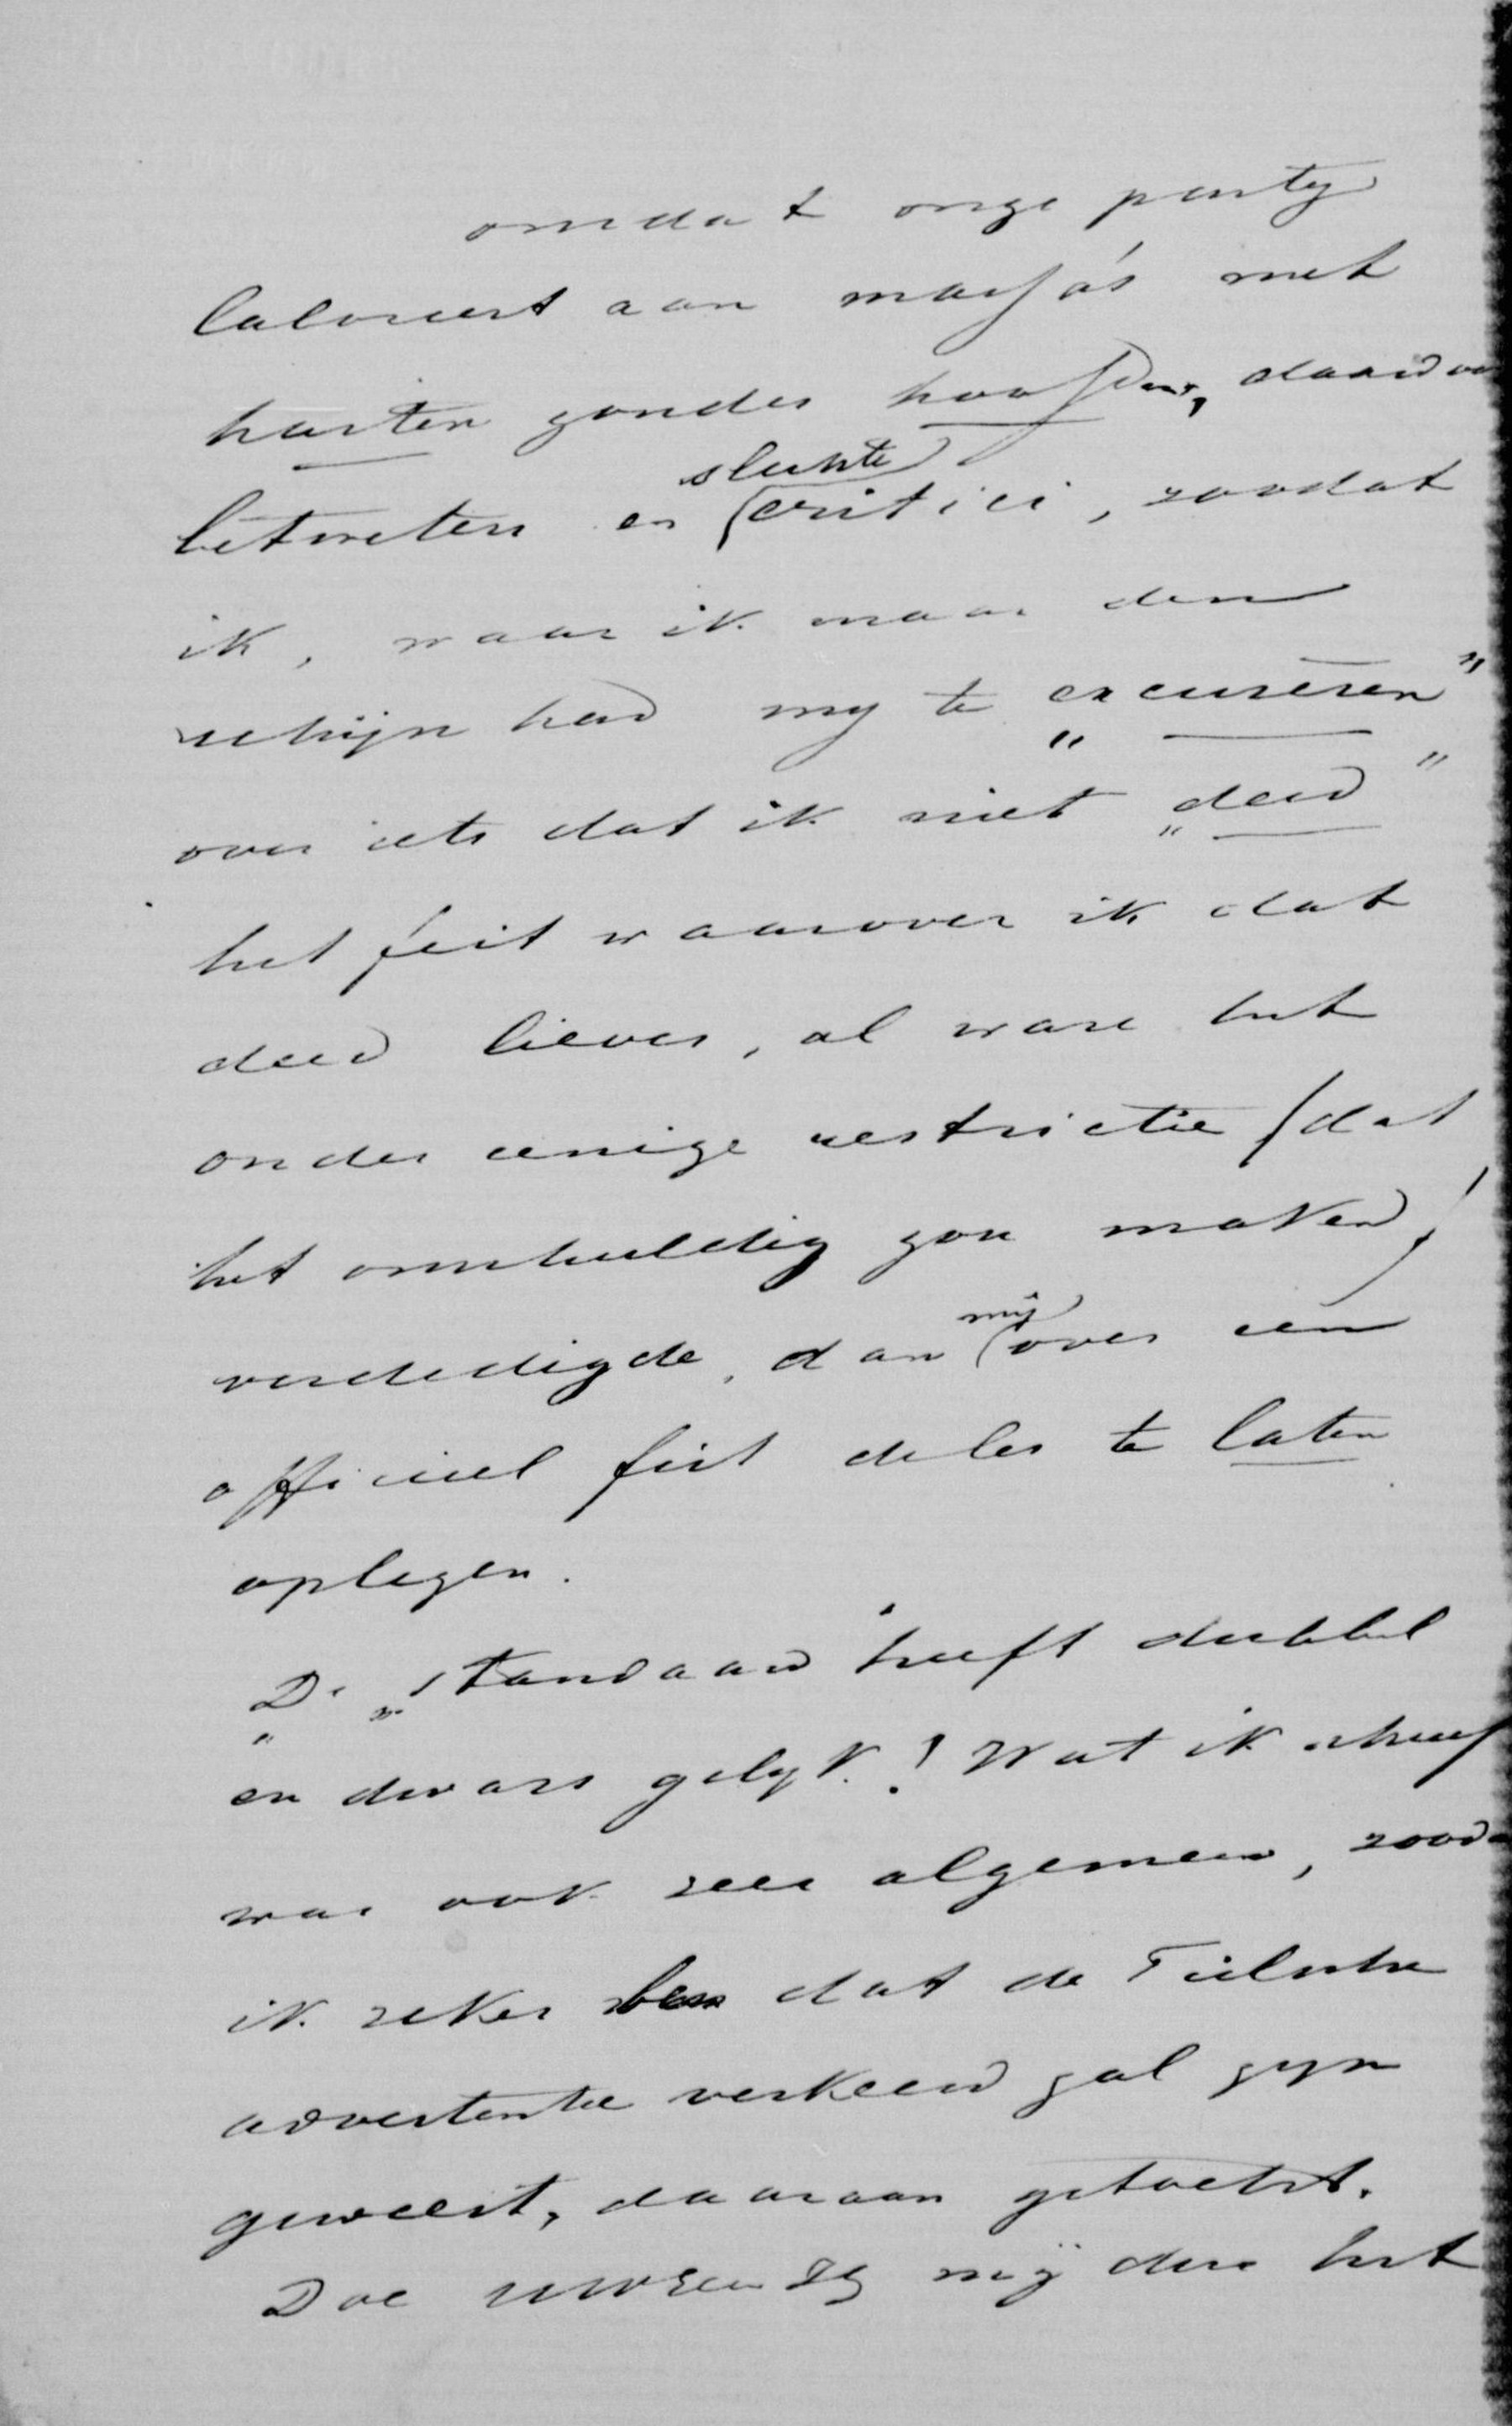 omdat onze party
laboreert aan massa's met
harten zonder hoofden, daardoor
betweters en slechte critici, zoodat
ik, waar ik maar den
schijn had my te „excuseren"
over iets dat ik niet „deed"
het feit waarover ik dat
deed liever, al ware het
onder eenige restrictie (dat
het onschuldig zou maken)
verdedigde, dan mij over een
officieel feit de les te laten
oplezen.
De „Standaard" heeft dubbel
en dwars gelyk! Wat ik schreef
was ook zeer algemeen, zoodat
ik zeker ben dat de Tielsche
advertentie verkeerd zal zyn
geweest, daaraan getoetst.
Doe mij dus het